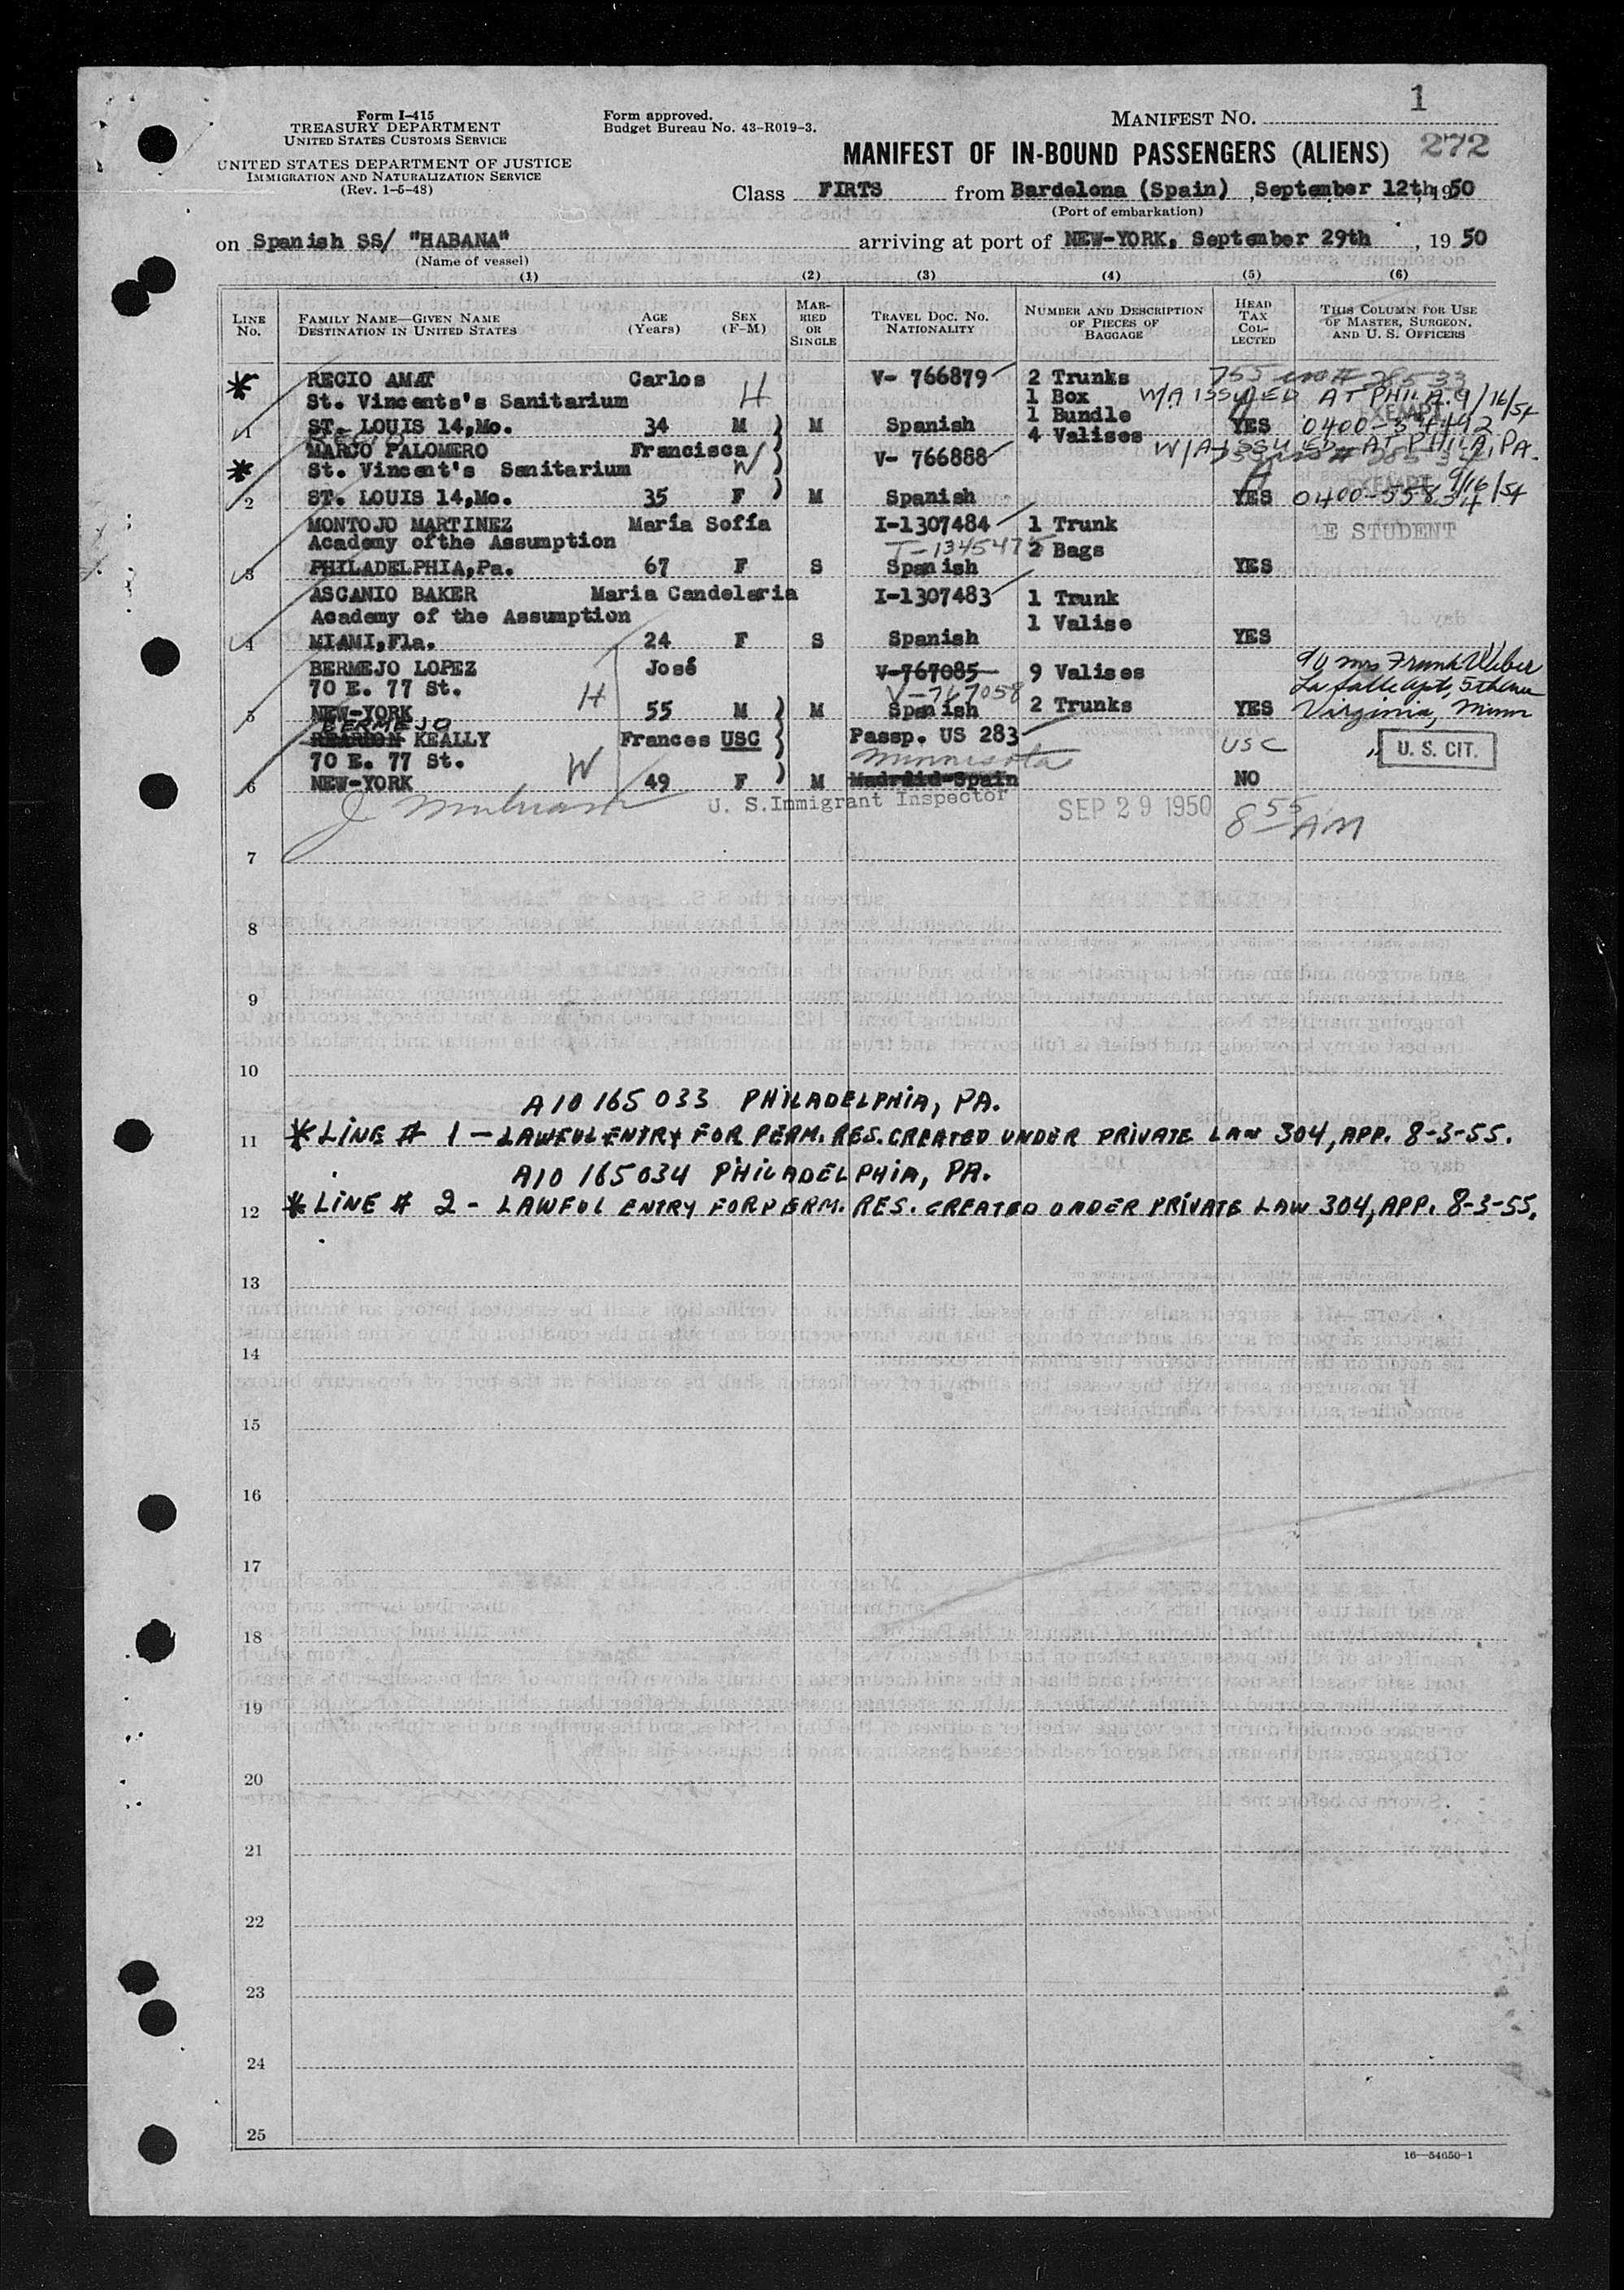 1
Form I-415
TREASURY DEPARTMENT
UNITED STATES CUSTOMS SERVICE
UNITED STATES DEPARTMENT OF JUSTICE
IMMIGRATION AND NATURALIZATION SERVICE
(Rev. 1-5-48)
Form approved.
Budget Bureau No. 43-R019-3.
MANIFEST NO.
MANIFEST OF IN-BOUND PASSENGERS (ALIENS) 272
Class FIRTS from Bardelona (Spain) , September 12th, 1950
(Port of embarkation)
on Spanish SS/ "HABANA" arriving at port of NEW-YORK, September 29th , 19 50
(Name of vessel)
(1) (2) (3) (4) (5) (6)
LINE No. FAMILY NAME—GIVEN NAME DESTINATION IN UNITED STATES AGE (Years) SEX (F-M) MARRIED OR SINGLE TRAVEL DOC. NO. NATIONALITY NUMBER AND DESCRIPTION OF PIECES OF BAGGAGE HEAD TAX COLLECTED THIS COLUMN FOR USE OF MASTER, SURGEON, AND U. S. OFFICERS
* REGIO AMAT Carlos H V- 766879 2 Trunks
St. Vincents's Sanitarium 1 Box W/A ISSUED AT PHILA. 9/16/54
1 Bundle EXEMPT
1 ST. LOUIS 14,Mo. 34 M M Spanish 4 Valises YES
REGIO
MARCO PALOMERO Francisca V- 766888 W/A ISSUED AT PHILA, PA.
* St. Vincent's Sanitarium W EXEMPT 9/16/54
2 ST. LOUIS 14,Mo. 35 F M Spanish YES 0400-55834
MONTOJO MARTINEZ María Sofía I-1307484 1 Trunk 4E STUDENT
Academy ofthe Assumption T-1345475 2 Bags
3 PHILADELPHIA,Pa. 67 F S Spanish YES
ASCANIO BAKER Maria Candelaria I-1307483 1 Trunk
Academy of the Assumption 1 Valise
4 MIAMI,Fla. 24 F S Spanish YES
BERMEJO LOPEZ José V-767085 9 Valises c/o Mrs Frank Weber
70 E. 77 St. H V-767058 La Salle Apt, 5th Ave
5 NEW-YORK 55 M M Spanish 2 Trunks YES Virginia, Minn
BERMEJO
KEALLY Frances USC Passp. US 283 USC U. S. CIT.
70 E. 77 St. W Minnesota
6 NEW-YORK 49 F M Madraid-Spain NO
U. S. Immigrant Inspector SEP 29 1950 8 55 AM
7
8
9
10
A10 165 033 PHILADELPHIA, PA.
11 * LINE # 1 - LAWFUL ENTRY FOR PERM. RES. CREATED UNDER PRIVATE LAW 304, APP. 8-3-55.
A10 165034 PHILADELPHIA, PA.
12 * LINE # 2 - LAWFUL ENTRY FOR PERM. RES. CREATED UNDER PRIVATE LAW 304, APP. 8-3-55.
13
14
15
16
17
18
19
20
21
22
23
24
25
16—54650-1